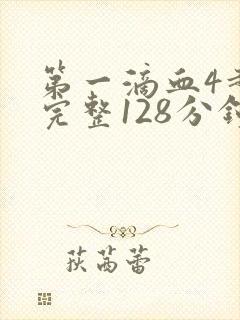 第一滴血4
完整128分
荻苒蕾